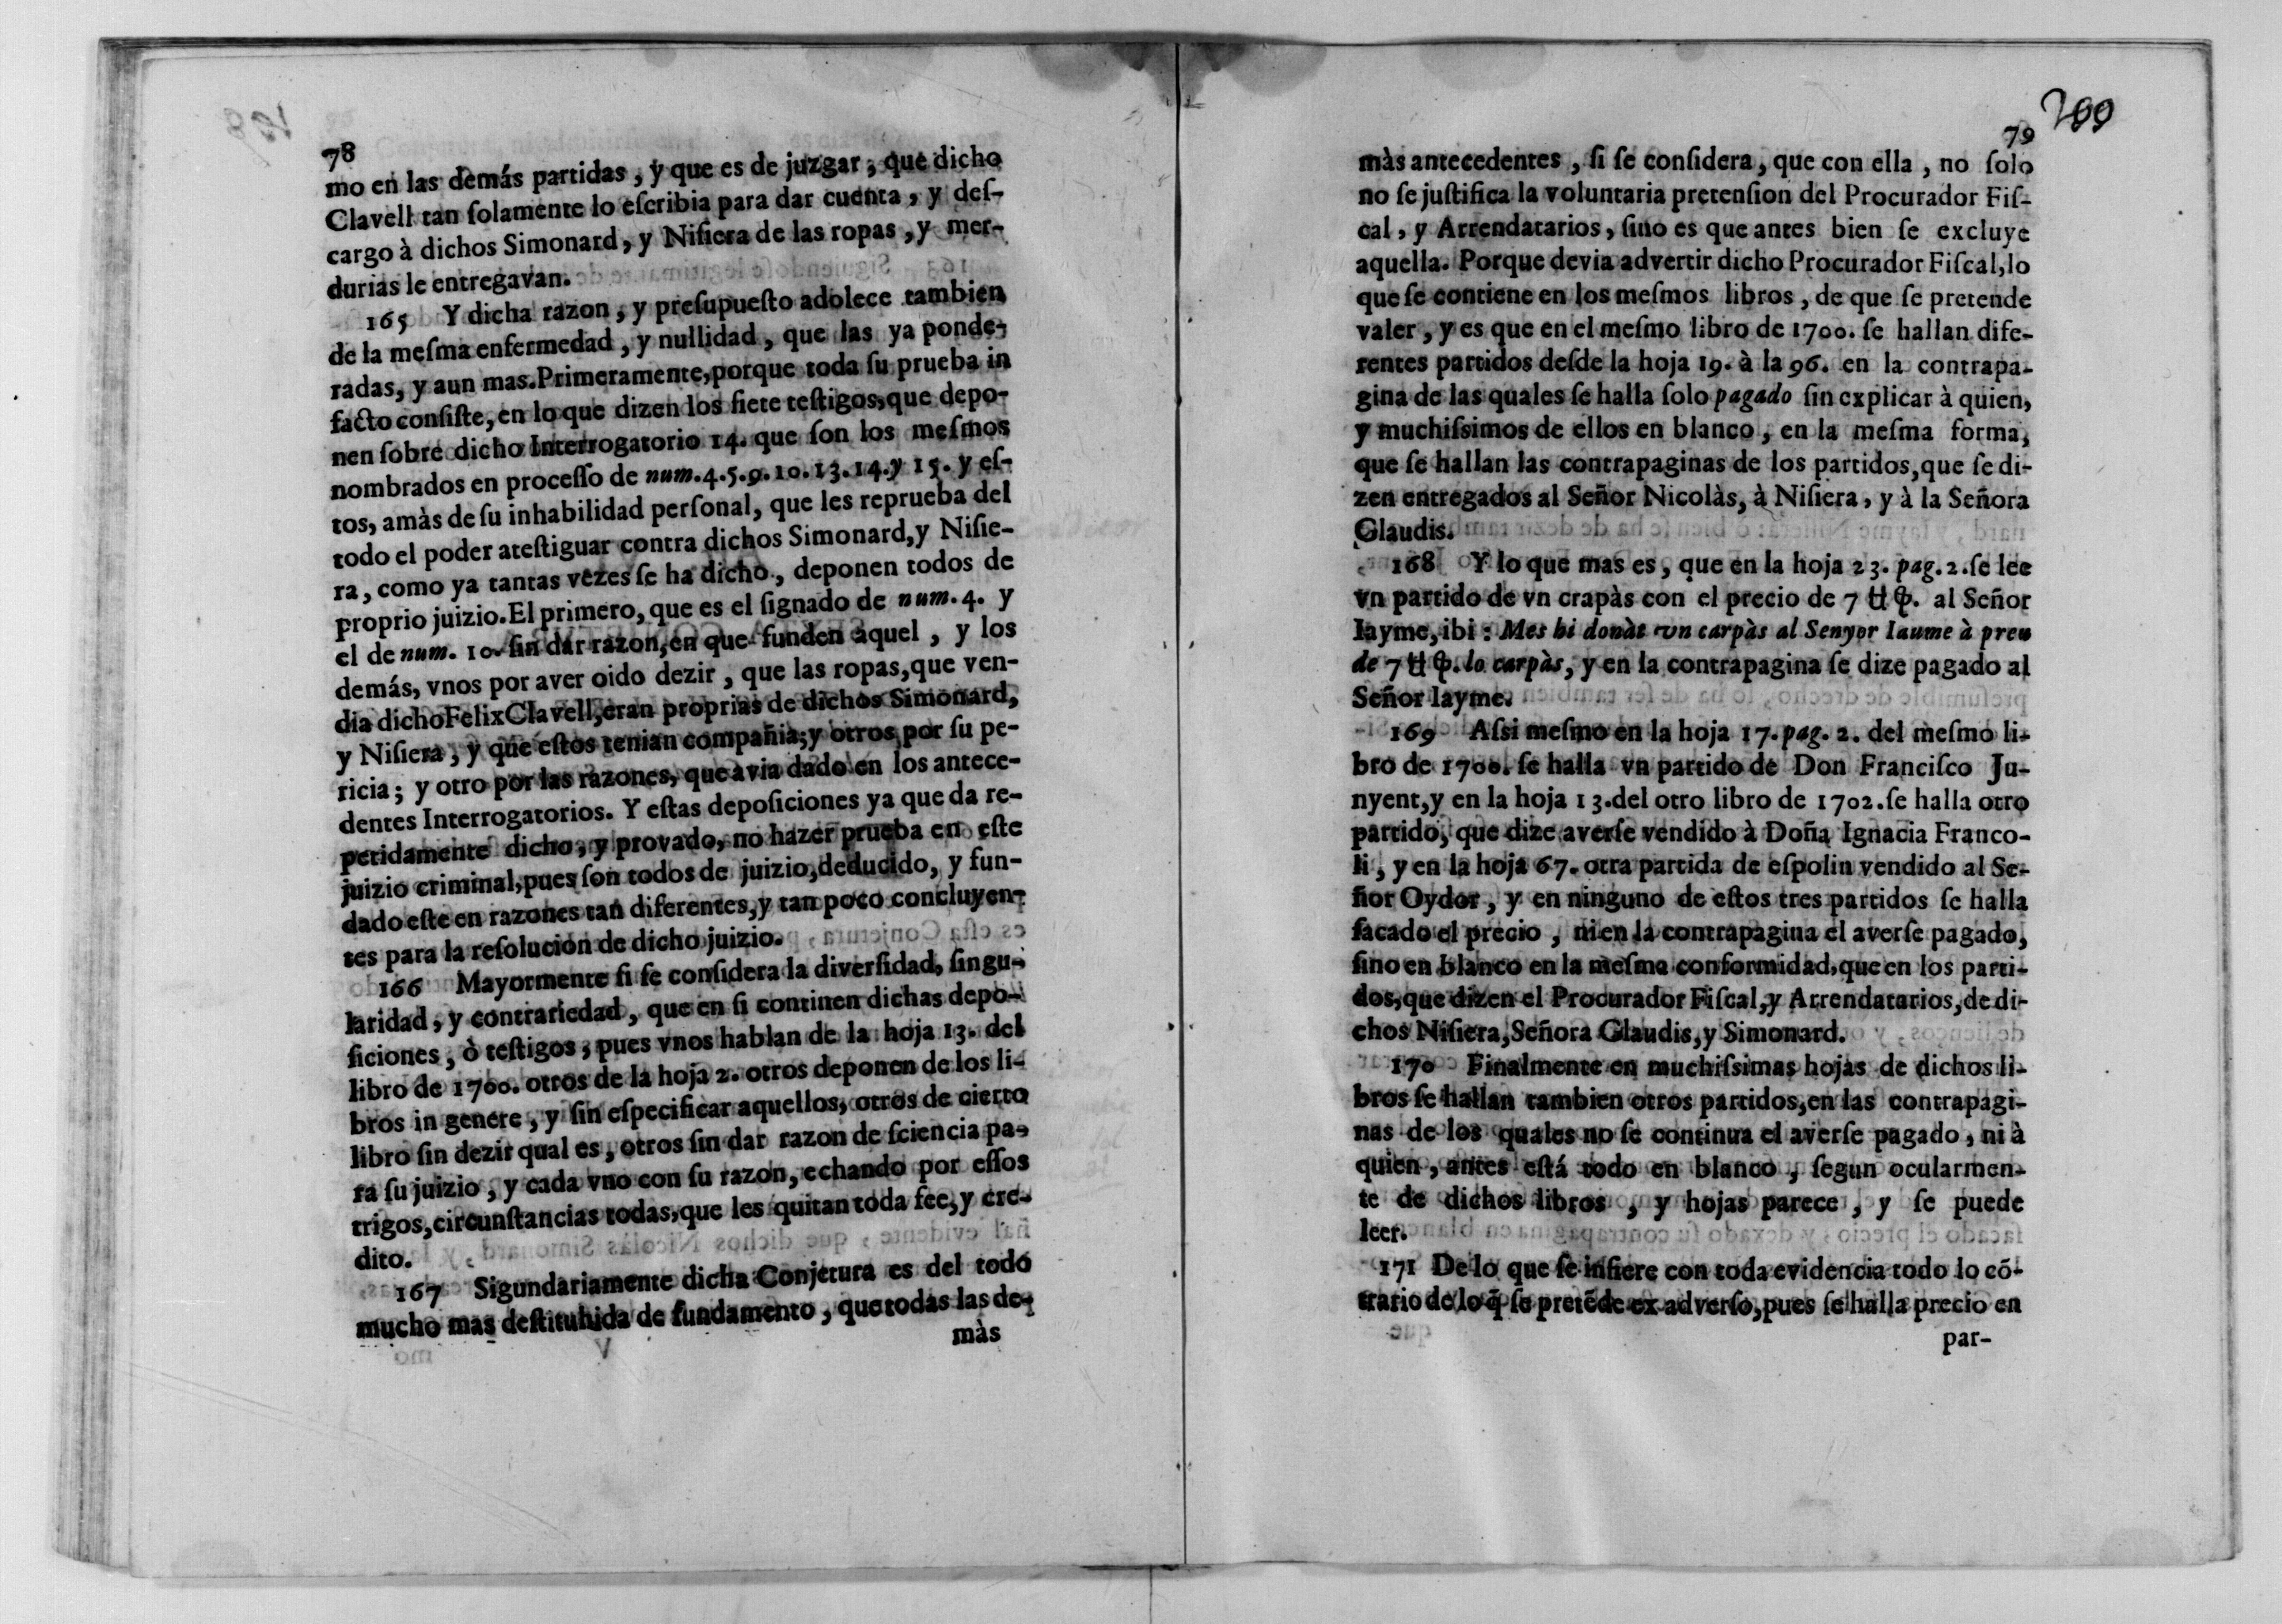 78
mo en las demás partidas, y que es de juzgar, que dicho
Clavell tan ſolamente lo eſcribia para dar cuenta, y deſ-
cargo à dichos Simonard, y Niſiera de las ropas, y mer-
durias le entregavan.
165 Y dicha razon, y preſupueſto adolece tambien
de la meſma enfermedad, y nullidad, que las ya ponde-
radas, y aun mas. Primeramente, porque toda ſu prueba in
facto conſiſte, en lo que dizen los ſiete teſtigos, que depo-
nen ſobre dicho Interrogatorio 14. que ſon los meſmos
nombrados en proceſſo de num. 4. 5. 9. 10. 13. 14. y 15. y eſ-
tos, amàs de ſu inhabilidad perſonal, que les reprueba del
todo el poder ateſtiguar contra dichos Simonard, y Niſie-
ra, como ya tantas vezes ſe ha dicho, deponen todos de
proprio juizio. El primero, que es el ſignado de num. 4. y
el de num. 10. ſin dar razon, en que funden aquel, y los
demás, vnos por aver oido dezir, que las ropas, que ven-
dia dicho Felix Clavell, eran proprias de dichos Simonard,
y Niſiera, y que eſtos tenian compañia; y otros por ſu pe-
ricia; y otro por las razones, que avia dado en los antece-
dentes Interrogatorios. Y eſtas depoſiciones ya que da re-
petidamente dicho, y provado, no hazer prueba en eſte
juizio criminal, pues ſon todos de juizio, deducido, y fun-
dado eſte en razones tan diferentes, y tan poco concluyen-
tes para la reſolucion de dicho juizio.
166 Mayormente ſi ſe conſidera la diverſidad, ſingu-
laridad, y contrariedad, que en ſi continen dichas depo-
ſiciones, ò teſtigos, pues vnos hablan de la hoja 13. del
libro de 1700. otros de la hoja 2. otros deponen de los li-
bros in genere, y ſin eſpecificar aquellos, otros de cierto
libro ſin dezir qual es, otros ſin dar razon de ſciencia pa-
ra ſu juizio, y cada vno con ſu razon, echando por eſſos
trigos, circunſtancias todas, que les quitan toda fee, y cre-
dito.
167 Sigundariamente dicha Conjetura es del todo
mucho mas deſtituhida de fundamento, que todas las de-
màs
799
79
màs antecedentes, ſi ſe conſidera, que con ella, no ſolo
no ſe juſtifica la voluntaria pretenſion del Procurador Fiſ-
cal, y Arrendatarios, ſino es que antes bien ſe excluye
aquella. Porque devia advertir dicho Procurador Fiſcal, lo
que ſe contiene en los meſmos libros, de que ſe pretende
valer, y es que en el meſmo libro de 1700. ſe hallan dife-
rentes partidos deſde la hoja 19. à la 96. en la contrapa-
gina de las quales ſe halla ſolo pagado ſin explicar à quien,
y muchiſsimos de ellos en blanco, en la meſma forma,
que ſe hallan las contrapaginas de los partidos, que ſe di-
zen entregados al Señor Nicolàs, à Niſiera, y à la Señora
Glaudis.
168 Y lo que mas es, que en la hoja 23. pag. 2. ſe lee
vn partido de vn crapàs con el precio de 7 al Señor
Iayme, ibi: Mes hi donàt vn carpàs al Senyor Iaume à preu
de 7 lo carpàs, y en la contrapagina ſe dize pagado al
Señor Iayme.
169 Aſsi meſmo en la hoja 17. pag. 2. del meſmo li-
bro de 1700. ſe halla vn partido de Don Franciſco Ju-
nyent, y en la hoja 13. del otro libro de 1702. ſe halla otro
partido, que dize averſe vendido à Doña Ignacia Franco-
li, y en la hoja 67. otra partida de eſpolin vendido al Se-
ñor Oydor, y en ninguno de eſtos tres partidos ſe halla
ſacado el precio, ni en la contrapagina el averſe pagado,
ſino en blanco en la meſma conformidad, que en los parti-
dos, que dizen el Procurador Fiſcal, y Arrendatarios, de di-
chos Niſiera, Señora Glaudis, y Simonard.
170 Finalmente en muchiſsimas hojas de dichos li-
bros ſe hallan tambien otros partidos, en las contrapagi-
nas de los quales no ſe continua el averſe pagado, ni à
quien, antes eſtá todo en blanco, ſegun ocularmen-
te de dichos libros, y hojas parece, y ſe puede
leer.
171 De lo que ſe infiere con toda evidencia todo lo cõ-
trario de lo q̃ ſe pretẽde ex adverſo, pues ſe halla precio en
par-